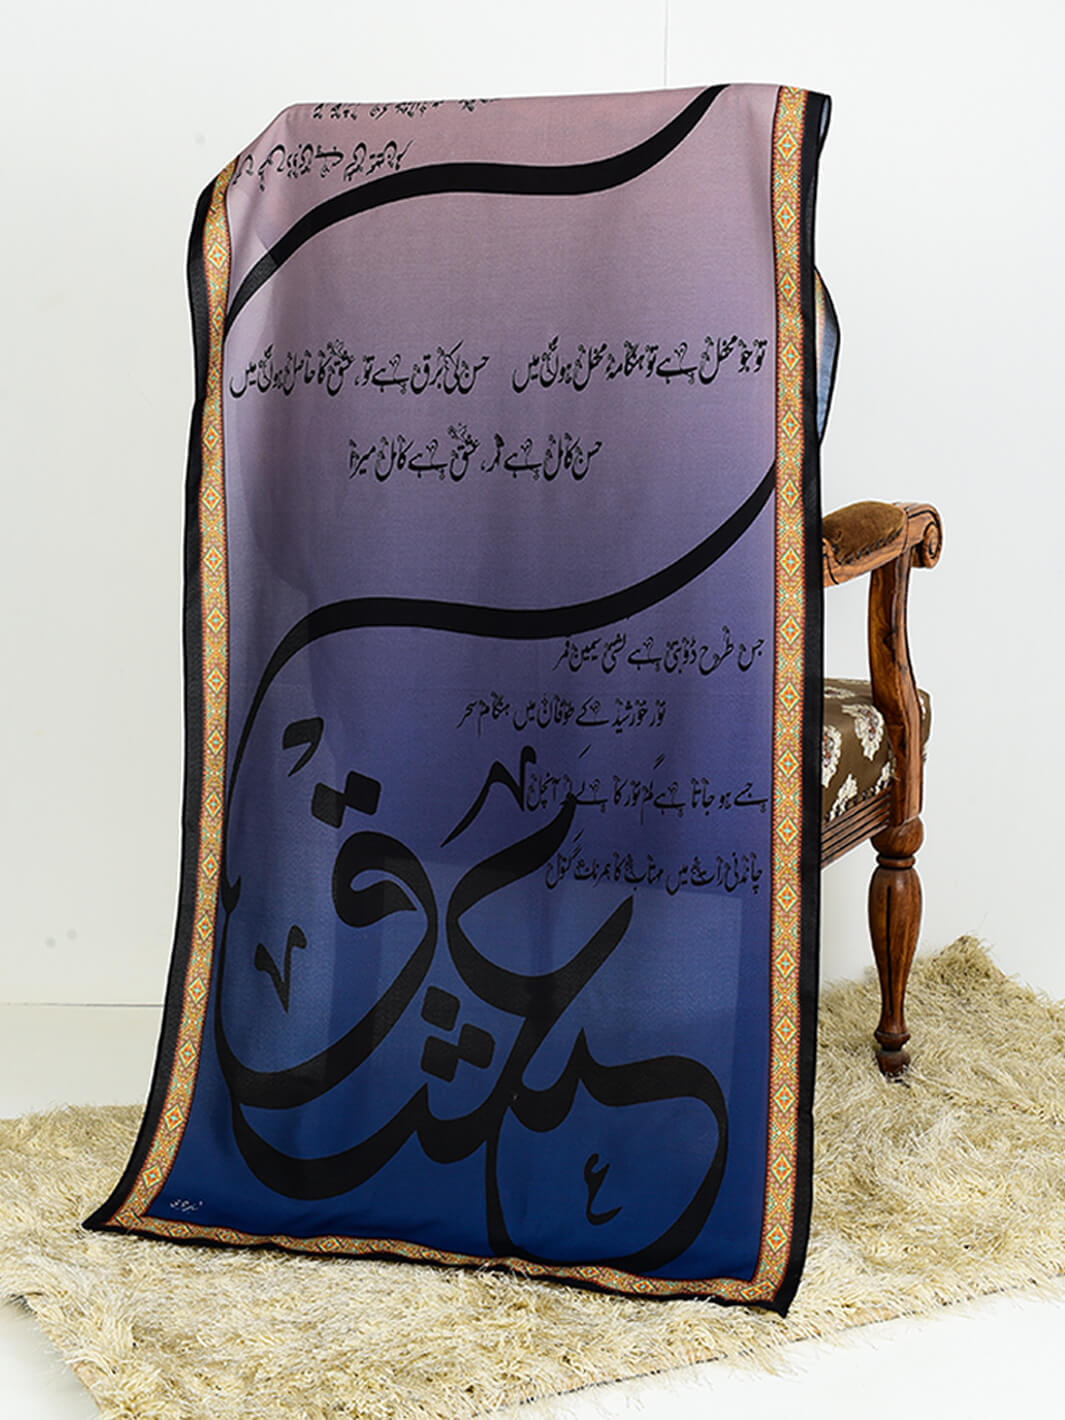 تو جو محفل ہے تو ہنگامۂ محفل ہوں میں
حسن کی برق ہے تو، عشق کا حاصل ہوں میں
حسن کامل ہے ترا، عشق ہے کامل میرا
جس طرح ڈوبتی ہے کشتی سیمین قمر
نور خورشید کے طوفان میں ہنگام سحر
جیسے ہو جاتا ہے گم نور کا لے کر آنچل
چاندنی رات میں مہتاب کا ہمرنگ کنول
عشق